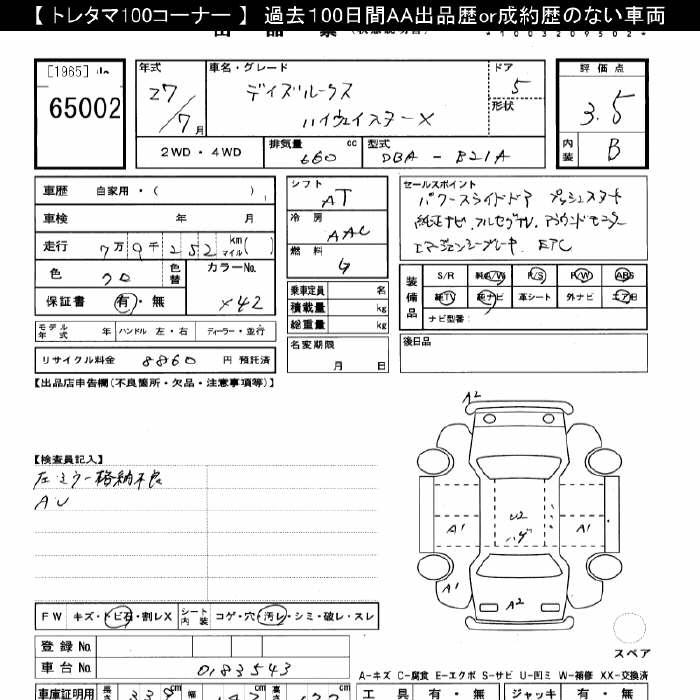 【 トレタマ100コーナー 】 過去100日間AA出品歴or成約歴のない車両
[1965]
65002
年式 27/7 月
車名・グレード
デイズルークス
ハイウェイスターX
ドア 5
形状
評価点
3.5
内装 B
2WD・4WD
排気量 660 cc
型式 DBA-B21A
車歴 自家用・( )
車検 年 月
走行 7万9千252 km マイル( )
色 クロ
色替
カラーNo. X42
保証書 有・無
モデル年式 年
ハンドル 左・右
ディーラー・並行
リサイクル料金 8860 円 預託済
シフト AT
冷房 AAC
燃料 G
乗車定員 名
積載量 kg
総重量 kg
名変期限 月 日
セールスポイント
パワースライドドア プッシュスタート
純正ナビ.フルセグTV.アラウンドモニター
エマージェンシーブレーキ. ETC
装備品
S/R 純正A/W P/S P/W ABS
純TV 純ナビ 革シート 外ナビ エアB
ナビ型番:
後日品
【出品店申告欄(不良箇所・欠品・注意事項等)】
【検査員記入】
左ミラー格納不良
AU
A2
U2
ハゲ
A1
A1
A1
A2
スペア
FW キズ・トビ石・割レX
シート内装 コゲ・穴・汚レ・シミ・破レ・スレ
登録No.
車台No. 0183543
A-キズ C-腐食 E-エクボ S-サビ U-凹ミ W-補修 XX-交換済
車庫証明用 長さ 339 cm 幅 cm 高さ cm
工具 有・無 ジャッキ 有・無